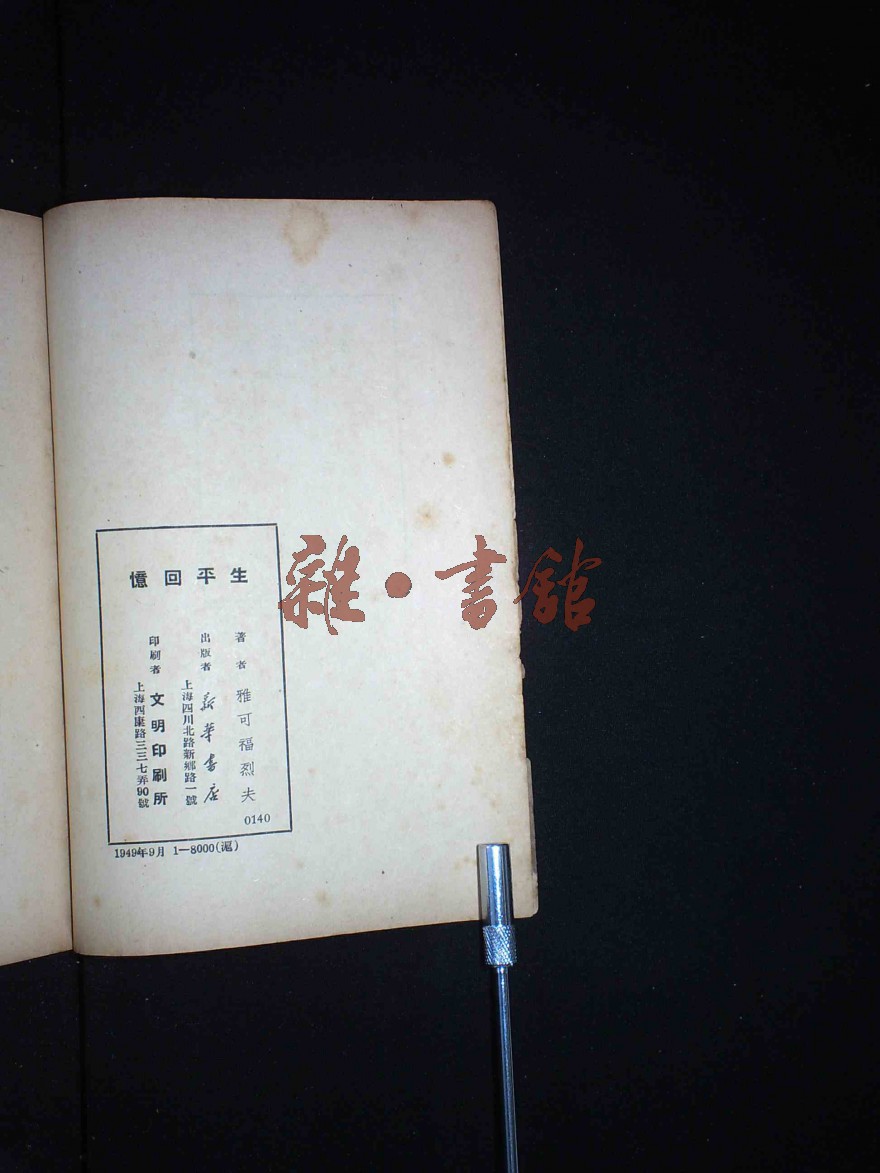 生平回憶
著者 雅可福烈夫
出版者 新華書店
上海四川北路新鄉路一號
印刷者 文明印刷所
上海西康路三三七弄90號
0140
1949年9月 1—8000(滬)
雜·書館